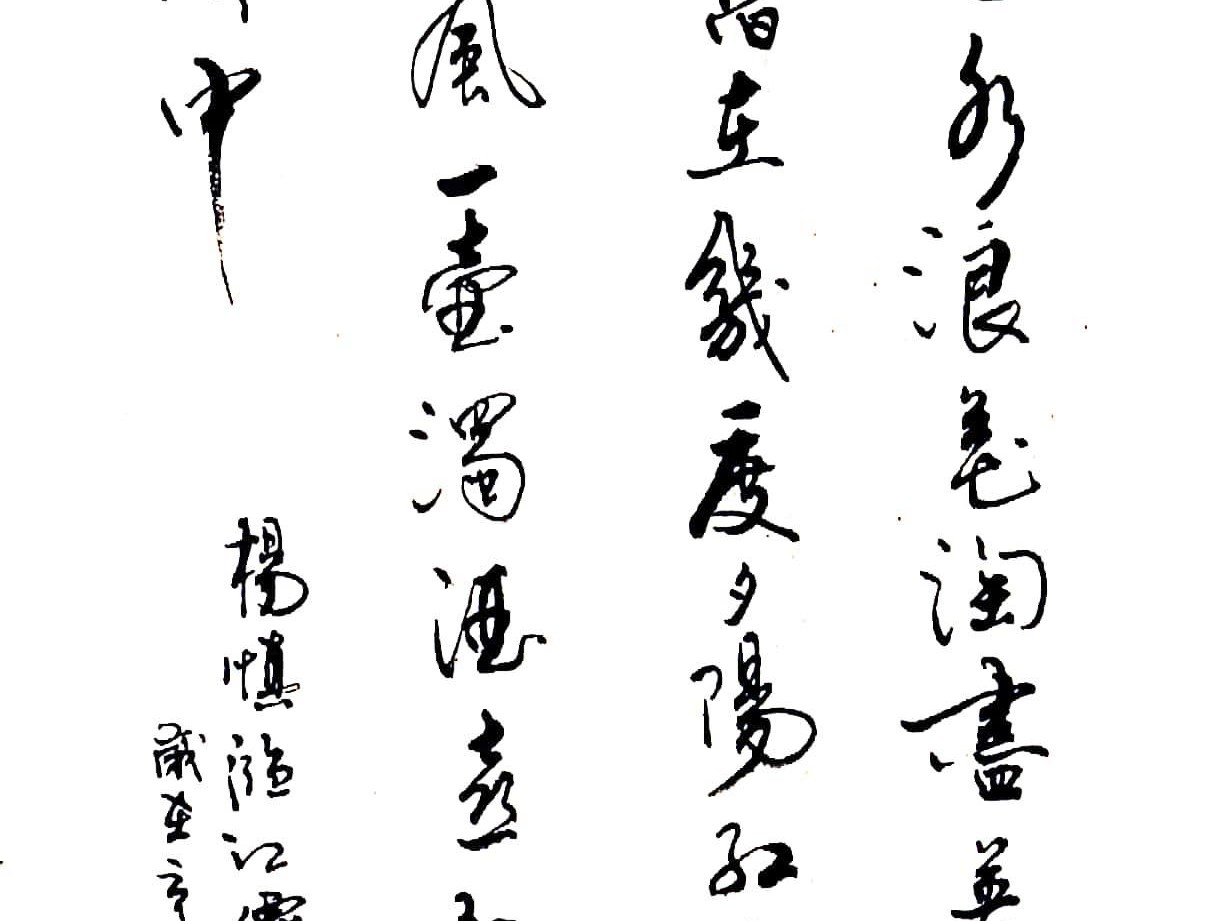 水浪花淘盡英
舊在幾度夕陽紅
風一壺濁酒喜
中
楊慎臨江
歲在